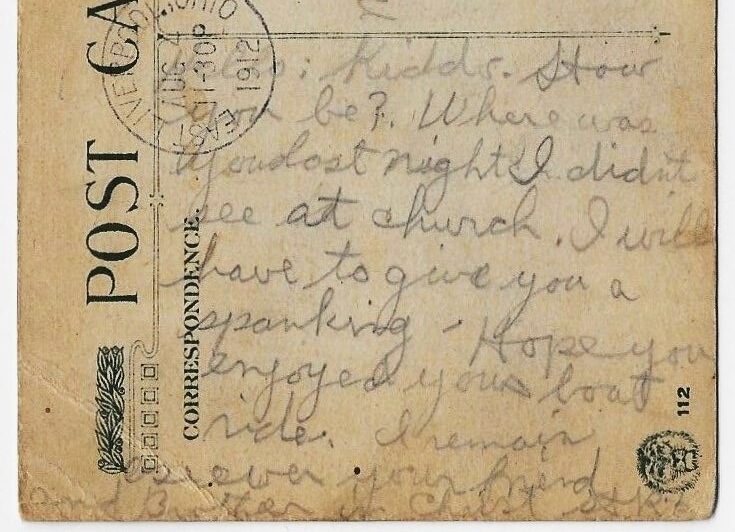 POST CA
EAST LIVERPOOL, OHIO
AUG 24
1-30P
1912
CORRESPONDENCE.
Hello: Kiddo. How
you be? Where was
you last night I didn't
see at church. I will
have to give you a
spanking - Hope you
enjoyed your boat
ride. I remain
as ever your friend
and Brother in Christ
112